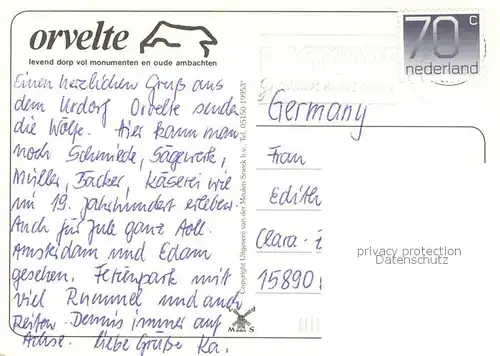 orvelte
levend dorp vol monumenten en oude ambachten
70 c
nederland
Einen herzlichen Gruß aus
dem Urdorf Orvelte senden
die Wölfe. Hier kann man
noch Schmiede, Sägewerk,
Müller, Bäcker, Käserei wie
im 19. Jahrhundert erleben.
Auch für Jule ganz toll.
Amsterdam und Edam
gesehen. Ferienpark mit
viel Rummel und auch
Reiten. Dennis immer auf
Achse. Liebe Grüße Ka.
Copyright Uitgeverij van der Meulen Sneek b.v., Tel. 05150-19953*
M S
Germany
Frau
Edith
Clara-
15890
privacy protection
Datenschutz